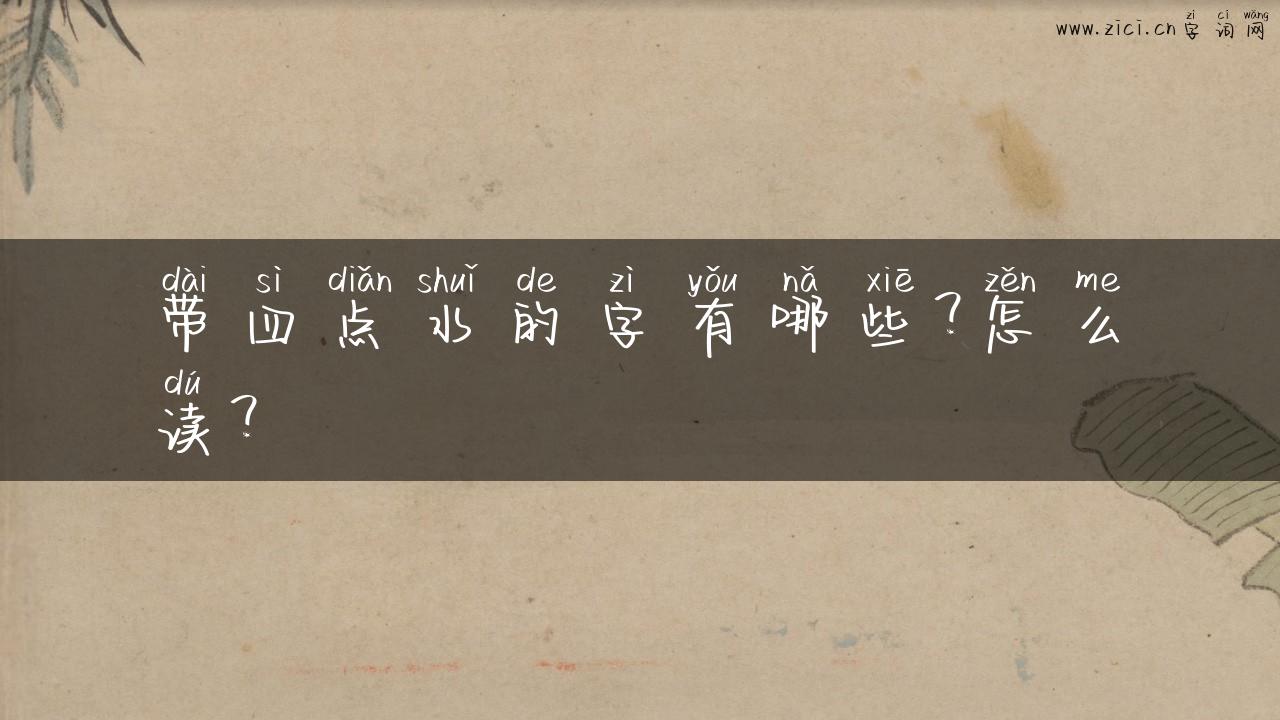 zì cí wǎng
www.zici.cn 字词网
dài sì diǎn shuǐ de zì yǒu nǎ xiē zěn me
带四点水的字有哪些？怎么
dú
读？